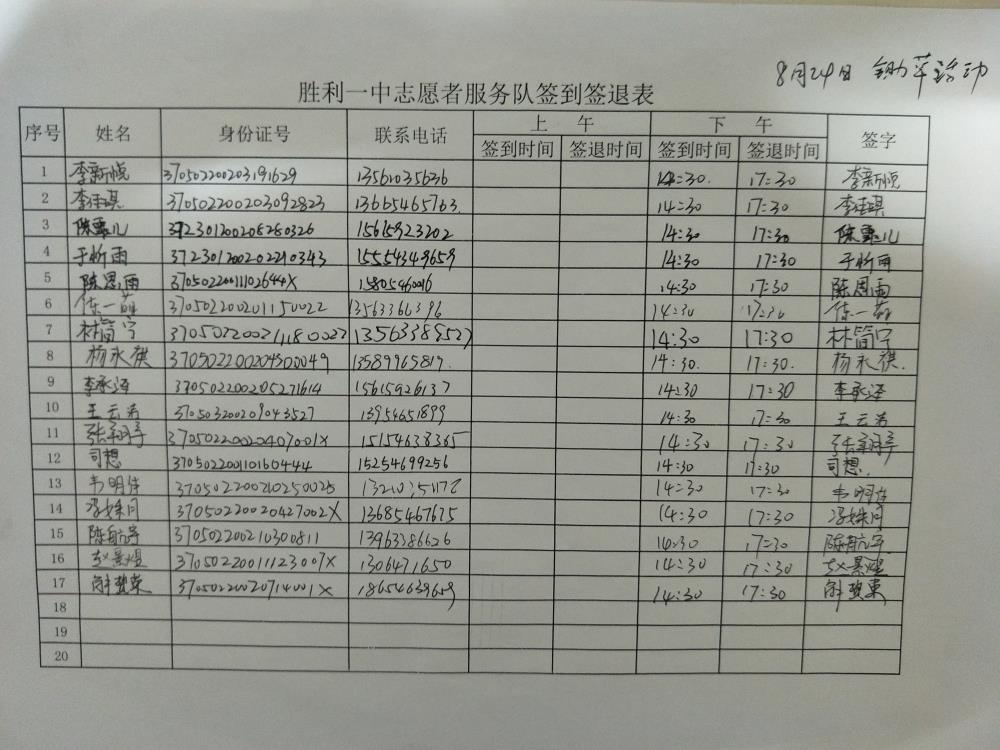 8月24日 锄草活动
胜利一中志愿者服务队签到签退表
序号 姓名 身份证号 联系电话 上 午 下 午 签字
签到时间 签退时间 签到时间 签退时间
1 李新悦 370502200203191629 13561035636 14:30. 17:30 李新悦
2 李佳琪 370502200203092823 13665465763. 14:30 17:30 李佳琪
3 陈 儿 372301200208280326 15615923202 14:30 17:30 陈 儿
4 于忻雨 372301200202210343 15554349659 14:30 17:30 于忻雨
5 陈思雨 37050220011102644X 15805460016 14:30 17:30 陈思雨
6 陈一萌 370502200201150022 13563361396 14:30 17:30 陈一萌
7 林简宁 14:30 17:30 林简宁
8 杨永祺 370502200204300049 13589965819. 14:30. 17:30. 杨永祺.
9 李承泽 370502200205271614 15615926137 14:30 17:30 李承泽
10 王云若 370503200209043527 13954651899 14:30 17:30 王云若
11 37050220020407001X 15154638365 14:30 17:30
12 司想 370502200110160444 15254699256 14:30 17:30 司想.
13 韦明佳 370502200210250025 14:30 17:30 韦明佳
14 冯姝月 37050220020427002X 13685467675 14:30 17:30 冯姝月
15 陈航宇 370502200210300811 13963386626 14:30 17:30 陈航宇
16 赵景煜 37050220011123007X 1306471650 14:30 17:30 赵景煜
17 37050220020714001X 18654639659 14:30 17:30
18
19
20